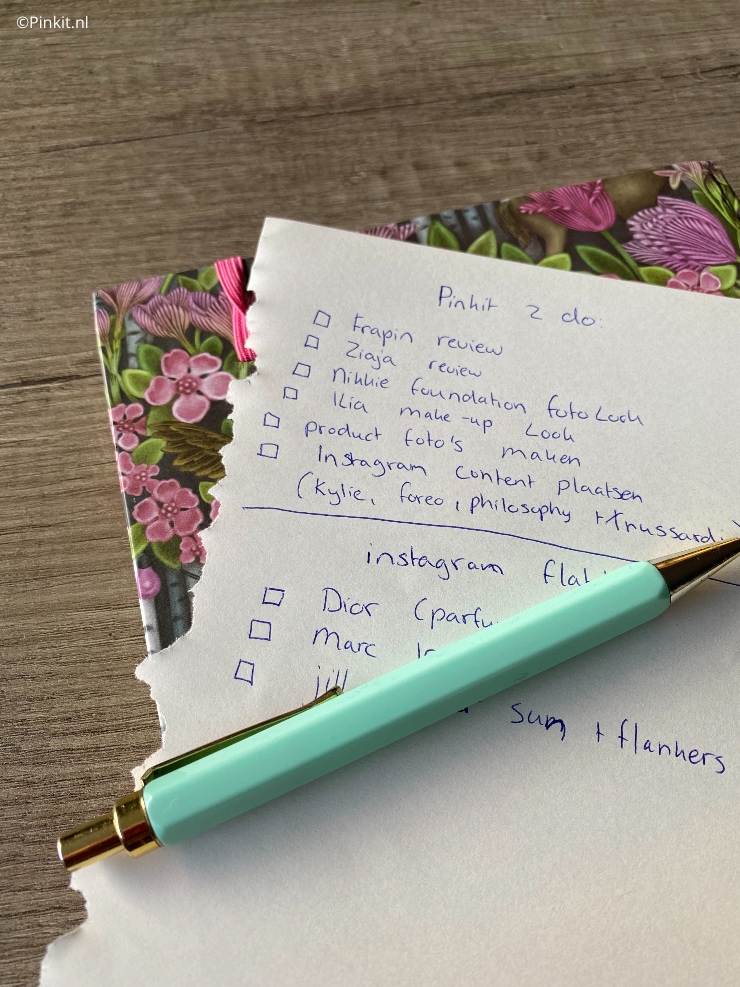 ©Pinkit.nl
Pinkit 2 do:
Frapin review
Ziaja review
Nikkie foundation foto Look
Ilia make-up Look
product foto's maken
Instagram content plaatsen
(Kylie, foreo, philosophy + Trussardi)
instagram
Dior
Marc
jill
sun + flankers